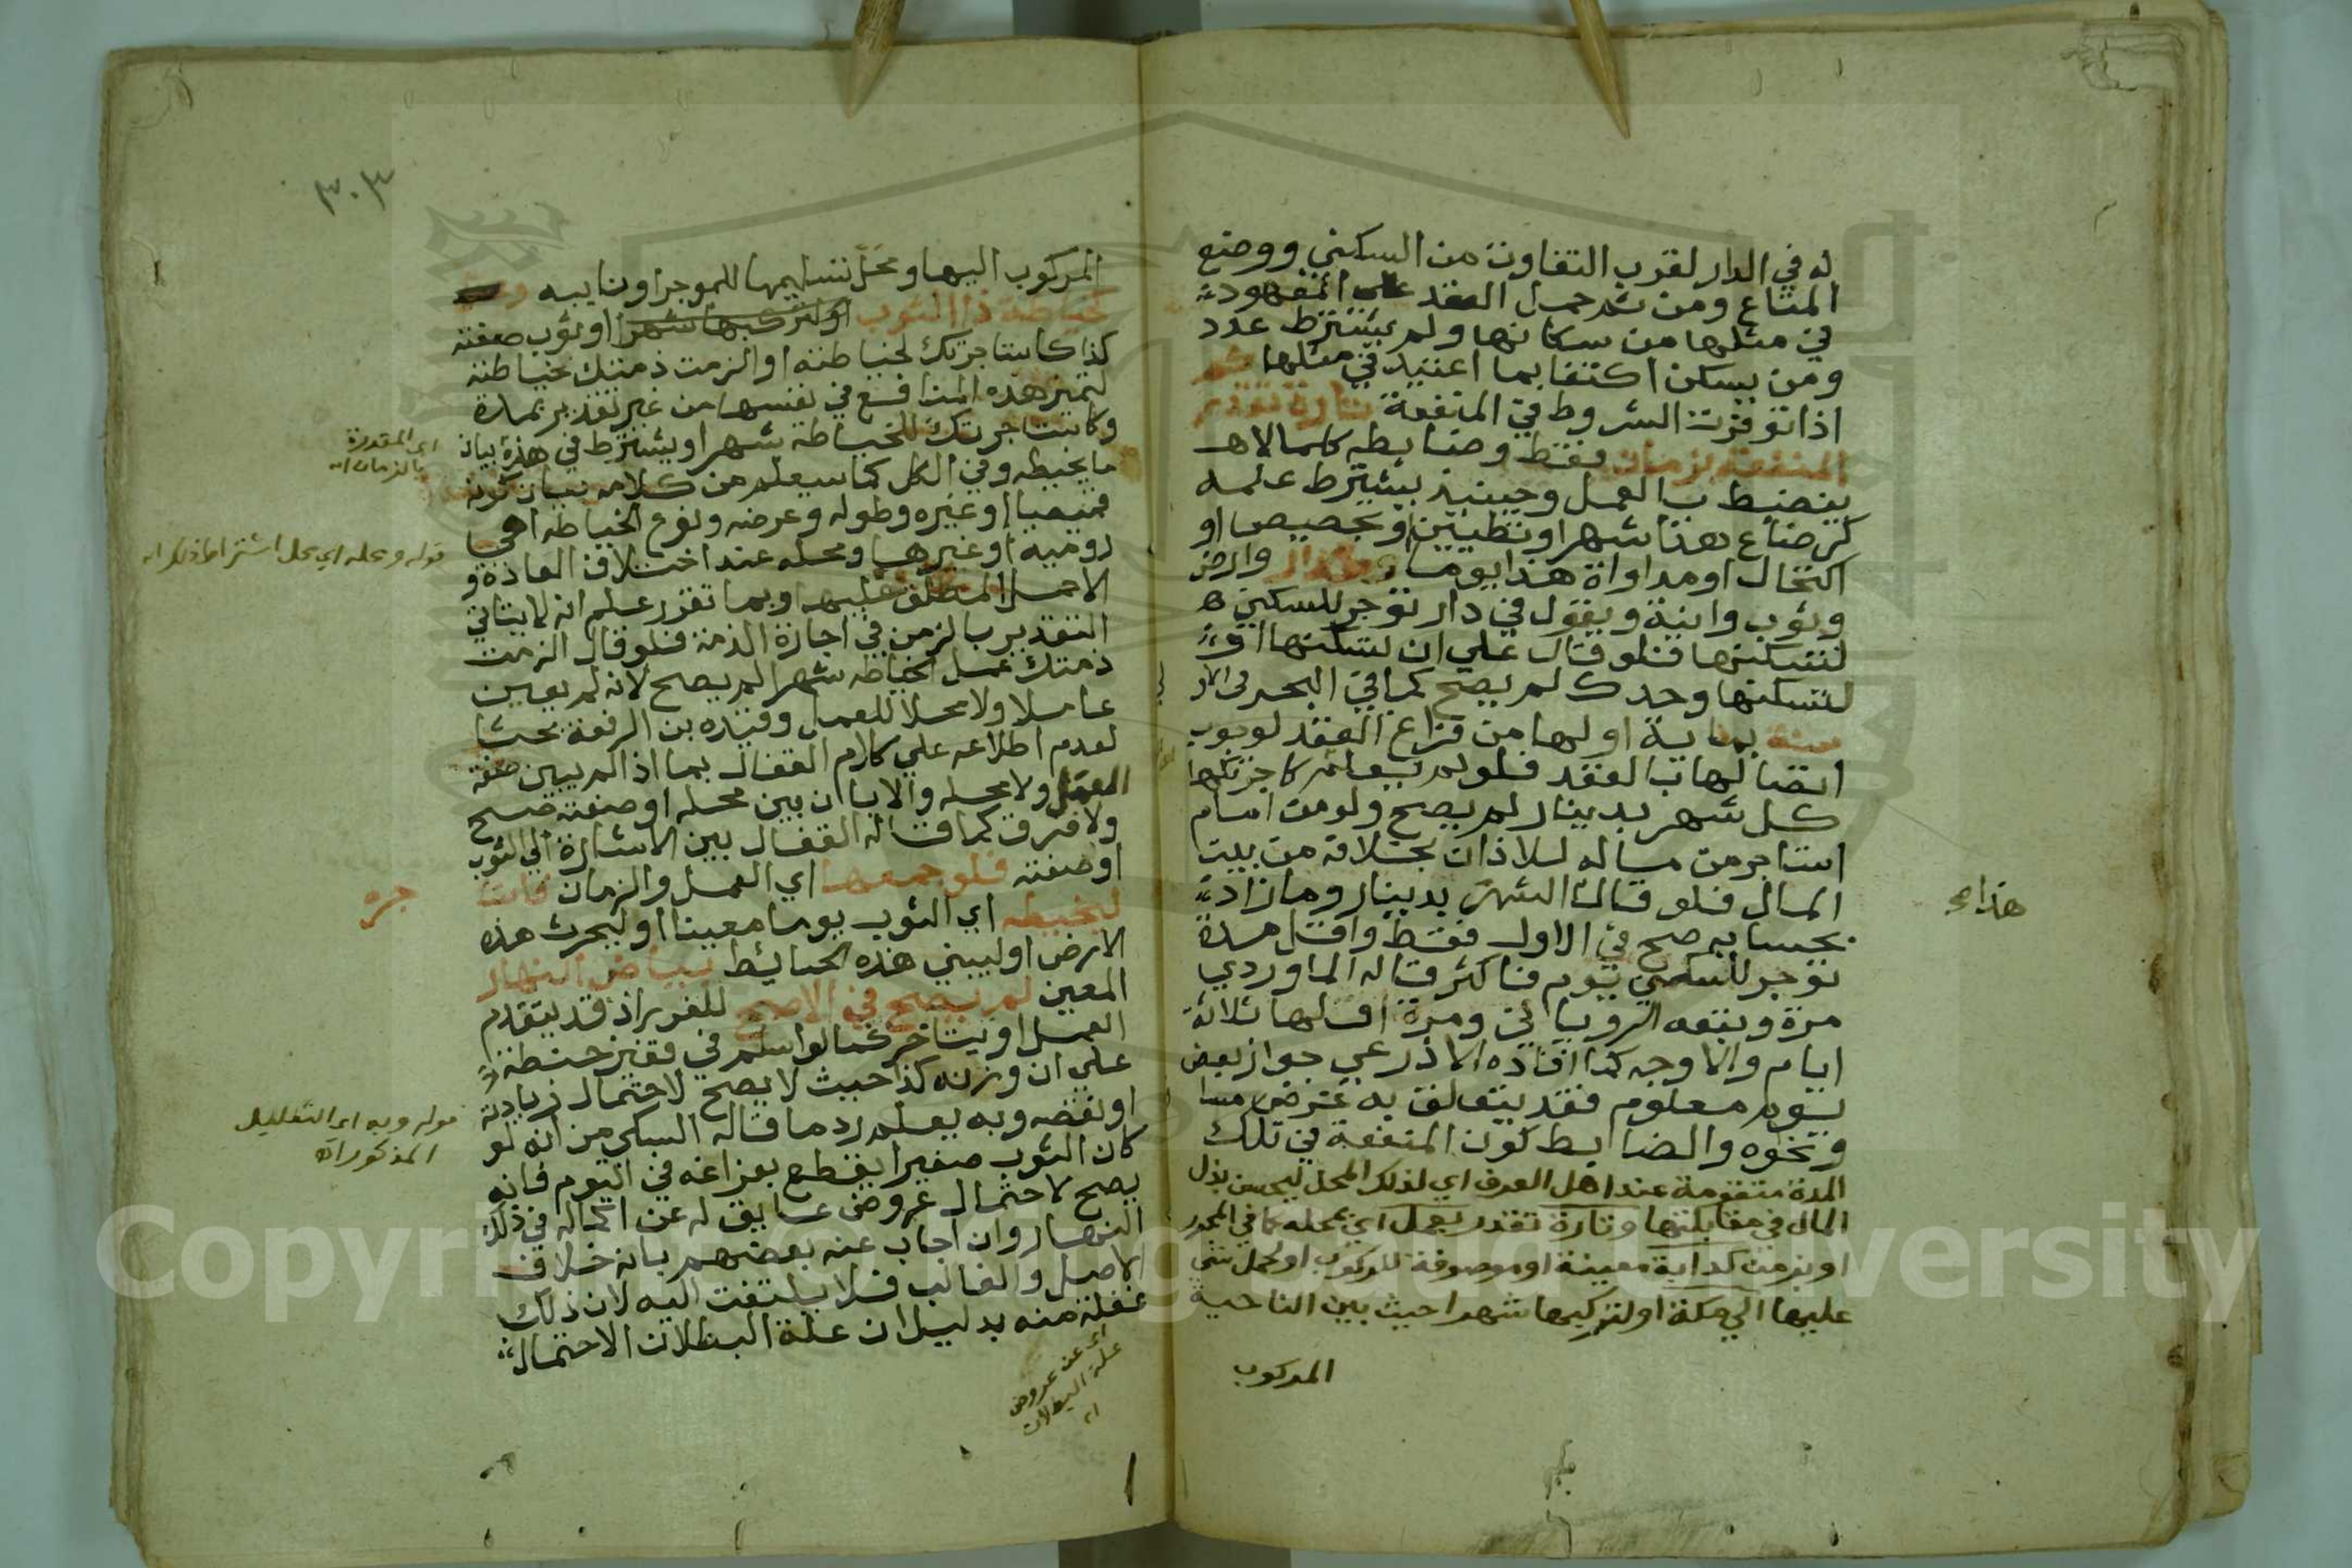 له في الدار لقرب التفاوت من السكني ووضع
المتاع ومن ثم حمل العقد علي المعهود
في مثلها من سكانها ولم يشترط عدد
ومن يسكن اكتفا بما اعتيد في مثلها ثم
اذا توفرت الشروط في المنفعة تارة تقدر
المنفعة بزمان فقط وضابطه كلما لا
ينضبط بالعمل وحينيذ يشترط علمه
كرضاع هذا شهرا وتطيين او تجصيص او
اكتحال او مداواة هذا يوما كدار وارض
وثوب وانية ويقول في دار توجر للسكني
لتسكنها فلو قال علي ان تسكنها او
لتسكنها وحدك لم يصح كما في البحر
سنة بماية اولها من فراغ العقد لوجوب
اتصالها بالعقد فلو لم يعلم كاجرتكها
كل شهر بدينار لم يصح ولو من امام
استاجر من ماله لاذان بخلافه من بيت
المال فلو قال الشهر بدينار وما زاد
بحسابه صح في الاول فقط واقل مدة
توجر للسكني يوم فاكثر قاله الماوردي
مرة وتبعه الروياني ومرة اقلها ثلاثة
ايام والاوجه كما افاده الاذرعي جواز بعض
يوم معلوم فقد يتعلق به غرض مسا
ونحوه والضابط كون المنفعة في تلك
المدة متقومة عند اهل العرف اي لذلك المحل ليحسن بذل
المال في مقابلتها وتارة تقدر بعمل اي بمحله كما في المحرر
او بزمن كدابة معينة او موصوفة للركوب او لحمل شي
عليها الي مكة او لتركبها شهرا حيث بين الناحية
المركوب
هذا
٣٠٣
المركوب اليها ومحل تسليمها للموجر او نايبه
كخياطة ذا الثوب او لتركبها شهرا او ثوب صفته
كذا كاستاجرتك لخياطته او الزمت ذمتك خياطته
لتميز هذه المنافع في نفسها من غير تقدير بمدة
وكاستاجرتك للخياطة شهرا ويشترط في هذه بيان
ما يخيطه وفي الكل كما سيعلم من كلامه بيان كونه
قميصا او غيره وطوله وعرضه ونوع الخياطة اهي
رومية او غيرها ومحله عند اختلاف العادة و
الا حمل المطلق عليها وبما تقرر علم انه لا يتاتي
التقدير بالزمن في اجارة الذمة فلو قال الزمت
ذمتك عمل الخياطة شهرا لم يصح لانه لم يعين
عاملا ولا محلا للعمل وقيده بن الرفعة بحثا
لعدم اطلاعه علي كلام القفال بما اذا لم يبين صفة
العمل ولا محله والا بان بين محله او صفته صح
ولا فرق كما قاله القفال بين الاشارة الي الثوب
او صفته فلو جمعهما اي العمل والزمان فاستا
ليخيطه اي الثوب يوما معينا او ليحرث هذه
الارض او ليبني هذه الحائط بياض النهار
المعين لم يصح في الاصح للغرر اذ قد يتقدم
العمل او يتاخر كما لو اسلم في قفيز حنطة
علي ان وزنه كذا حيث لا يصح لاحتمال زيادته
او نقصه وبه يعلم رد ما قاله السبكي من انه لو
كان الثوب صغيرا يقطع بفراغه في اليوم فانه
يصح لاحتمال عروض عايق له عن اكماله في ذلك
النهار وان اجاب عنه بعضهم بانه خلاف
الاصل والغالب فلا يلتفت اليه لان ذلك
غفلة منه بدليل ان علة البطلان الاحتمال
اي المقدرة
بالزمان اه
قوله ومحله اي محل اشتراط ذلك اه
جره
قوله وبه اي التعليل
المذكور اه
اي عن عروض
علة البطلان
اه
Copyright © King Saud University